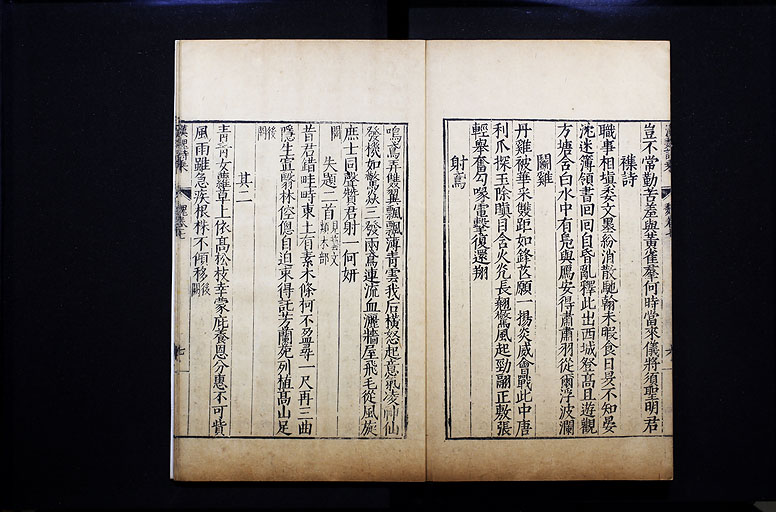 豈不常勤苦羞與黃雀羣何時當來儀將須聖明君
雜詩
職事相填委文墨紛消散馳翰未暇食日昃不知晏
沈迷簿領書回回自昏亂釋此出西城登高且遊觀
方塘含白水中有鳧與鴈安得肅肅羽從爾浮波瀾
鬭雞
丹雞被華采雙距如鋒芒願一揚炎威會戰此中唐
利爪探玉除瞋目含火光長翹驚風起勁翮正敷張
輕舉奮勾喙電擊復還翔
射鳶
鳴鳶弄雙翼飄飄薄青雲我后橫怒起意氣凌神仙
發機如驚焱三發兩鳶連流血灑牆屋飛毛從風旋
庶士同聲贊君射一何妍
失題二首見藝文類木部
昔君錯畦時東土有素木條柯不盈尋一尺再三曲
隱生寘翳林倥傯自迫束得託芳蘭苑列植高山足
後闕
其二
青青女蘿草上依高松枝幸蒙庇養恩分惠不可貲
風雨雖急疾根株不傾移後闕
漢魏詩集
魏卷七
七